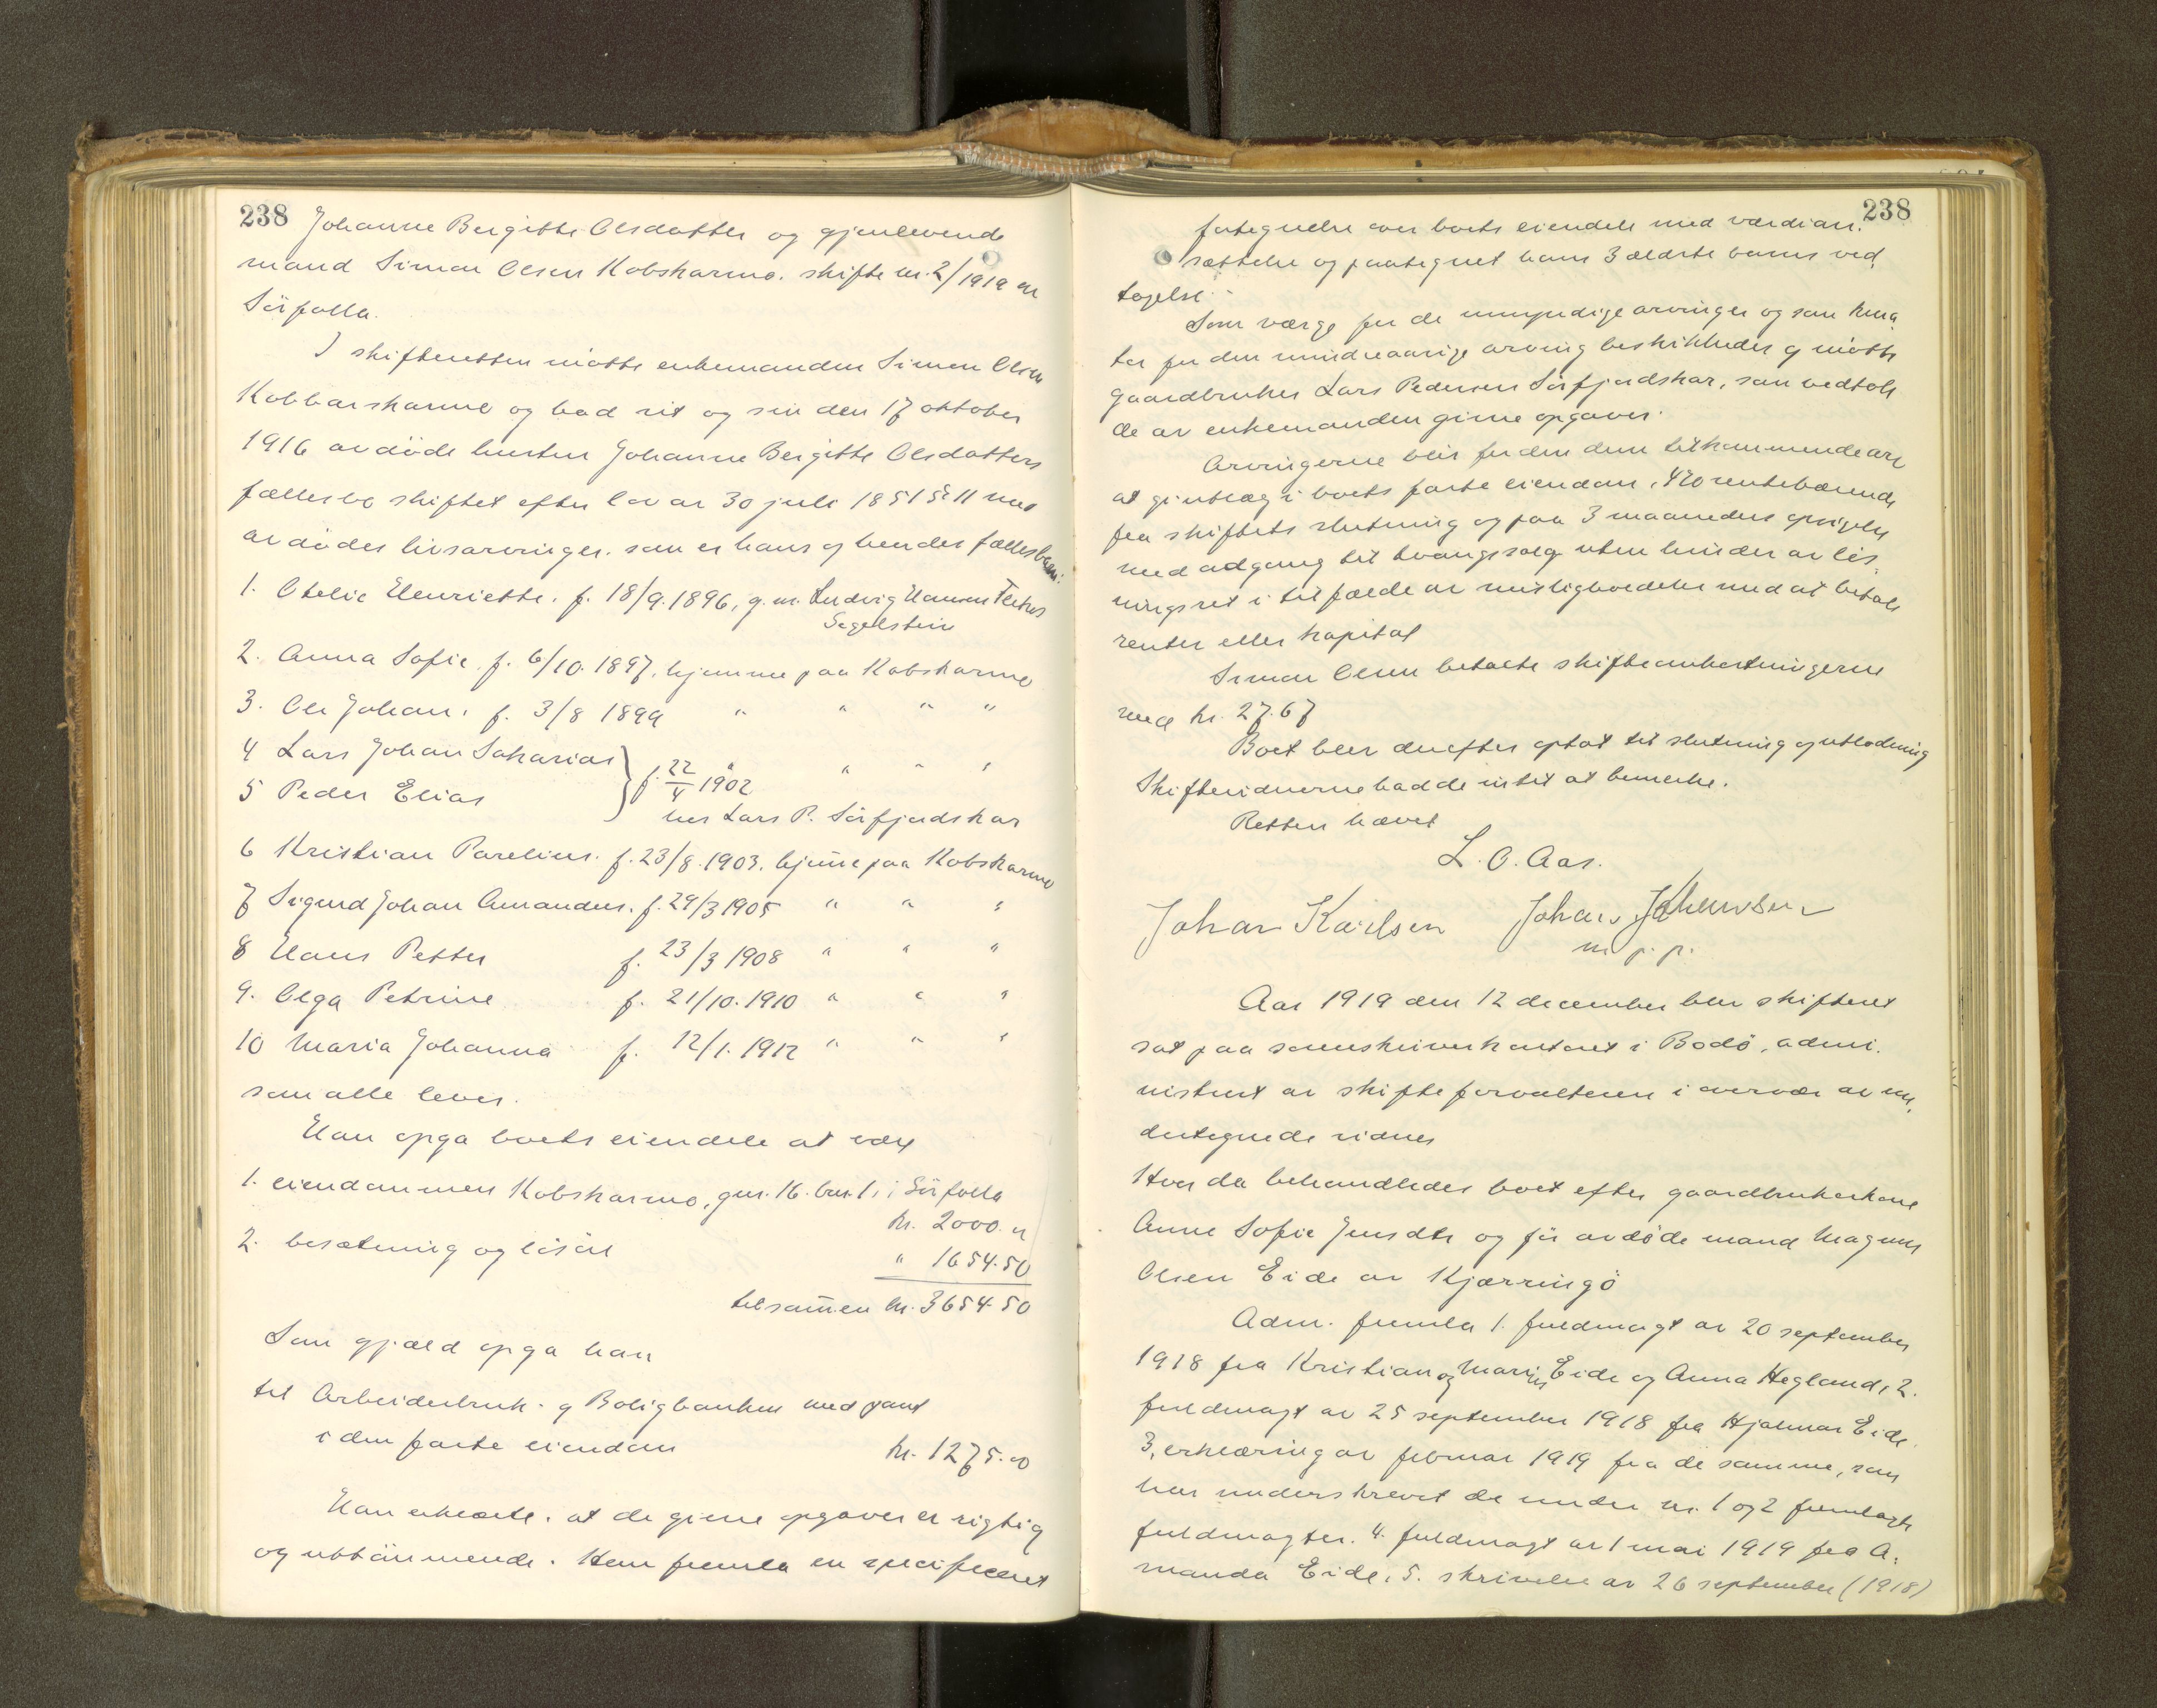 238
Johanne Bergitte Olsdatter og gjenlevende
mand Simon Olsen Kobskarmo. skifte nr. 2/1919 av
Sörfolla.
I skifteretten mötte enkemanden Simon Olsen
Kobbarskarmo og bad sit og sin den 17 oktober
1916 avdöde hustru Johanne Bergitte Olsdatters
fællesbo skiftet efter lov av 30 juli 1851 § 11 med
avdödes livsarvinger. som er hans og hendes fællesbarn:
1. Otelie Henriette. f. 18/9. 1896, g. m. Ludvig Hansen
Segelstein
2. Anna Sofie. f. 6/10. 1897. hjemme paa Kobskarmo
3. Ole Johan. f. 3/8 1899 " " " "
4 Lars Johan Sakarias
5 Peder Elias } f. 22/4 1902 " " " "
hos Lars P. Sörfjordskar
6 Kristian Parelius. f. 23/8. 1903. hjem̅e paa Kobskarmo
7 Sigurd Johan Amandus. f. 29/3 1905 " " "
8 Hans Petter f. 23/3 1908 " " "
9. Olga Petrine f. 21/10. 1910 " " "
10 Maria Johanna f. 12/1. 1912 " " "
som alle lever.
Han opga boets eiendele at være
1. eiendommen Kobskarmo, gnr. 16. brn. 1, i Sörfolla
kr. 2000.00
2. besætning og lösöre " 1654.50
tilsam̅en kr. 3654.50
Som gjæld opga han
til Arbeiderbruk- og Boligbanken med pant
i den faste eiendom kr. 1275.00
Han erklærte, at de givne opgaver er rigtig
og uttömmende. Han fremla en specificeret
238
fortegnelse over boets eiendele med værdian-
sættelse og paategnet hans 3 ældste barns ved-
tagelse.
Som værge for de umyndige arvinger og som kura-
tor for den mindreaarige arving beskikkedes og mötte
gaardbruker Lars Pedersen Sörfjordskar, som vedtok
de av enkemanden givne opgaver.
Arvingerne blir for den dem tilkommende arv
at gi utlæg i boets faste eiendom, 4% rentebærende
fra skiftets slutning og paa 3 maaneders opsigelse
med adgang til tvangssalg uten hinder av lös-
ningsret i tilfælde av misligholdelse med at betale
renter eller kapital
Simon Olsen betalte skifteomkostningerne
med kr. 27.67
Boet blev derefter optat til slutning og utlodning
Skiftevidnerne hadde intet at bemerke.
Retten hævet
L. O. Aas.
Johan Karlsen Johan Johansen
m. p. p.
Aar 1919 den 12 december blev skifteret
sat paa sorenskriverkontoret i Bodö, admi-
nistrert av skifteforvalteren i overvær av un-
dertegnede vidner
Hvor da behandledes boet efter gaardbrukerkone
Anne Sofie Jensdtr og för avdöde mand Magnus
Olsen Eide av Kjærringö
Adm. fremla 1. fuldmagt av 20 september
1918 fra Kristian og Marius Eide og Anna Hegland, 2.
fuldmagt av 25 september 1918 fra Hjalmar Eide
3, erklæring av februar 1919 fra de samme, som
har underskrevet de under nr. 1 og 2 fremlagte
fuldmagter. 4. fuldmagt av 1 mai 1919 fra A-
manda Eide, 5. skrivelse av 26 september (1918)